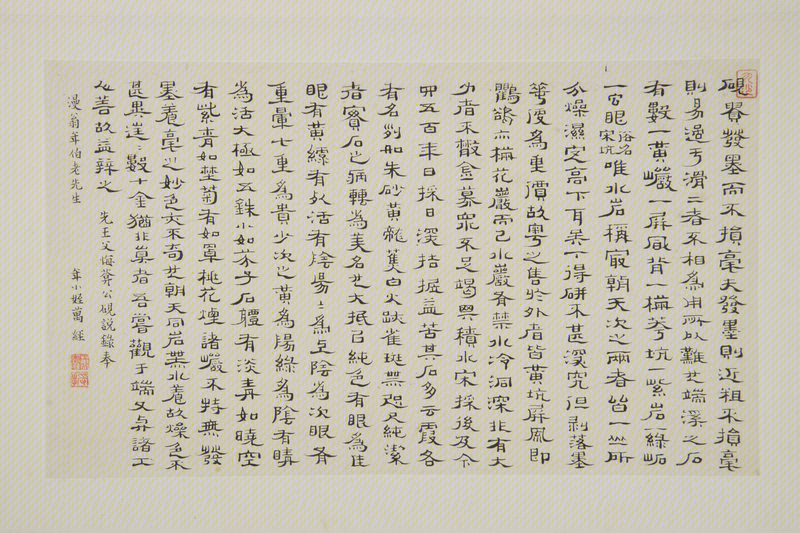 硯貴發墨而不損毫夫發墨則近粗不損毫
則易過于滑二者不相為用所以難也端溪之石
有數一黃巗一屏風背一坑一紫岩一綠
一宮眼宋坑俗名唯水岩稱最朝天次之兩者皆一所
分燥濕定高下耳得研不甚深究但剝落墨
復為重價故粵之售於外者皆黃坑屏風即
鸜鵒亦花巖而已水巖舊禁水冷洞深非有大
力者不敢募衆不足竭與積水宋採後及今
卯五百年日採日深拮据益苦其石多云霞各
有名列如朱砂黃龍蕉白火跌雀斑無凡純潔
者實石之病轉為美名也大抵石純色有眼為佳
眼有黃綠有死活有陰陽〻為上陰為次眼有
重暈七重為貴少次之黃為陽綠為陰有睛
為活大極如五銖小如芥子石體有淡青如曉空
有紫青如埜菊有如罩桃花煙諸巗不特無發
墨養毫之妙色亦不奇也朝天同岩無水養故燥色不
甚異遂〻數十金猶非真者吾嘗觀于端又與諸工
人善故益辨之
漫翁年伯老先生
先王父悔菴公硯說錄奉
年小姪萬經